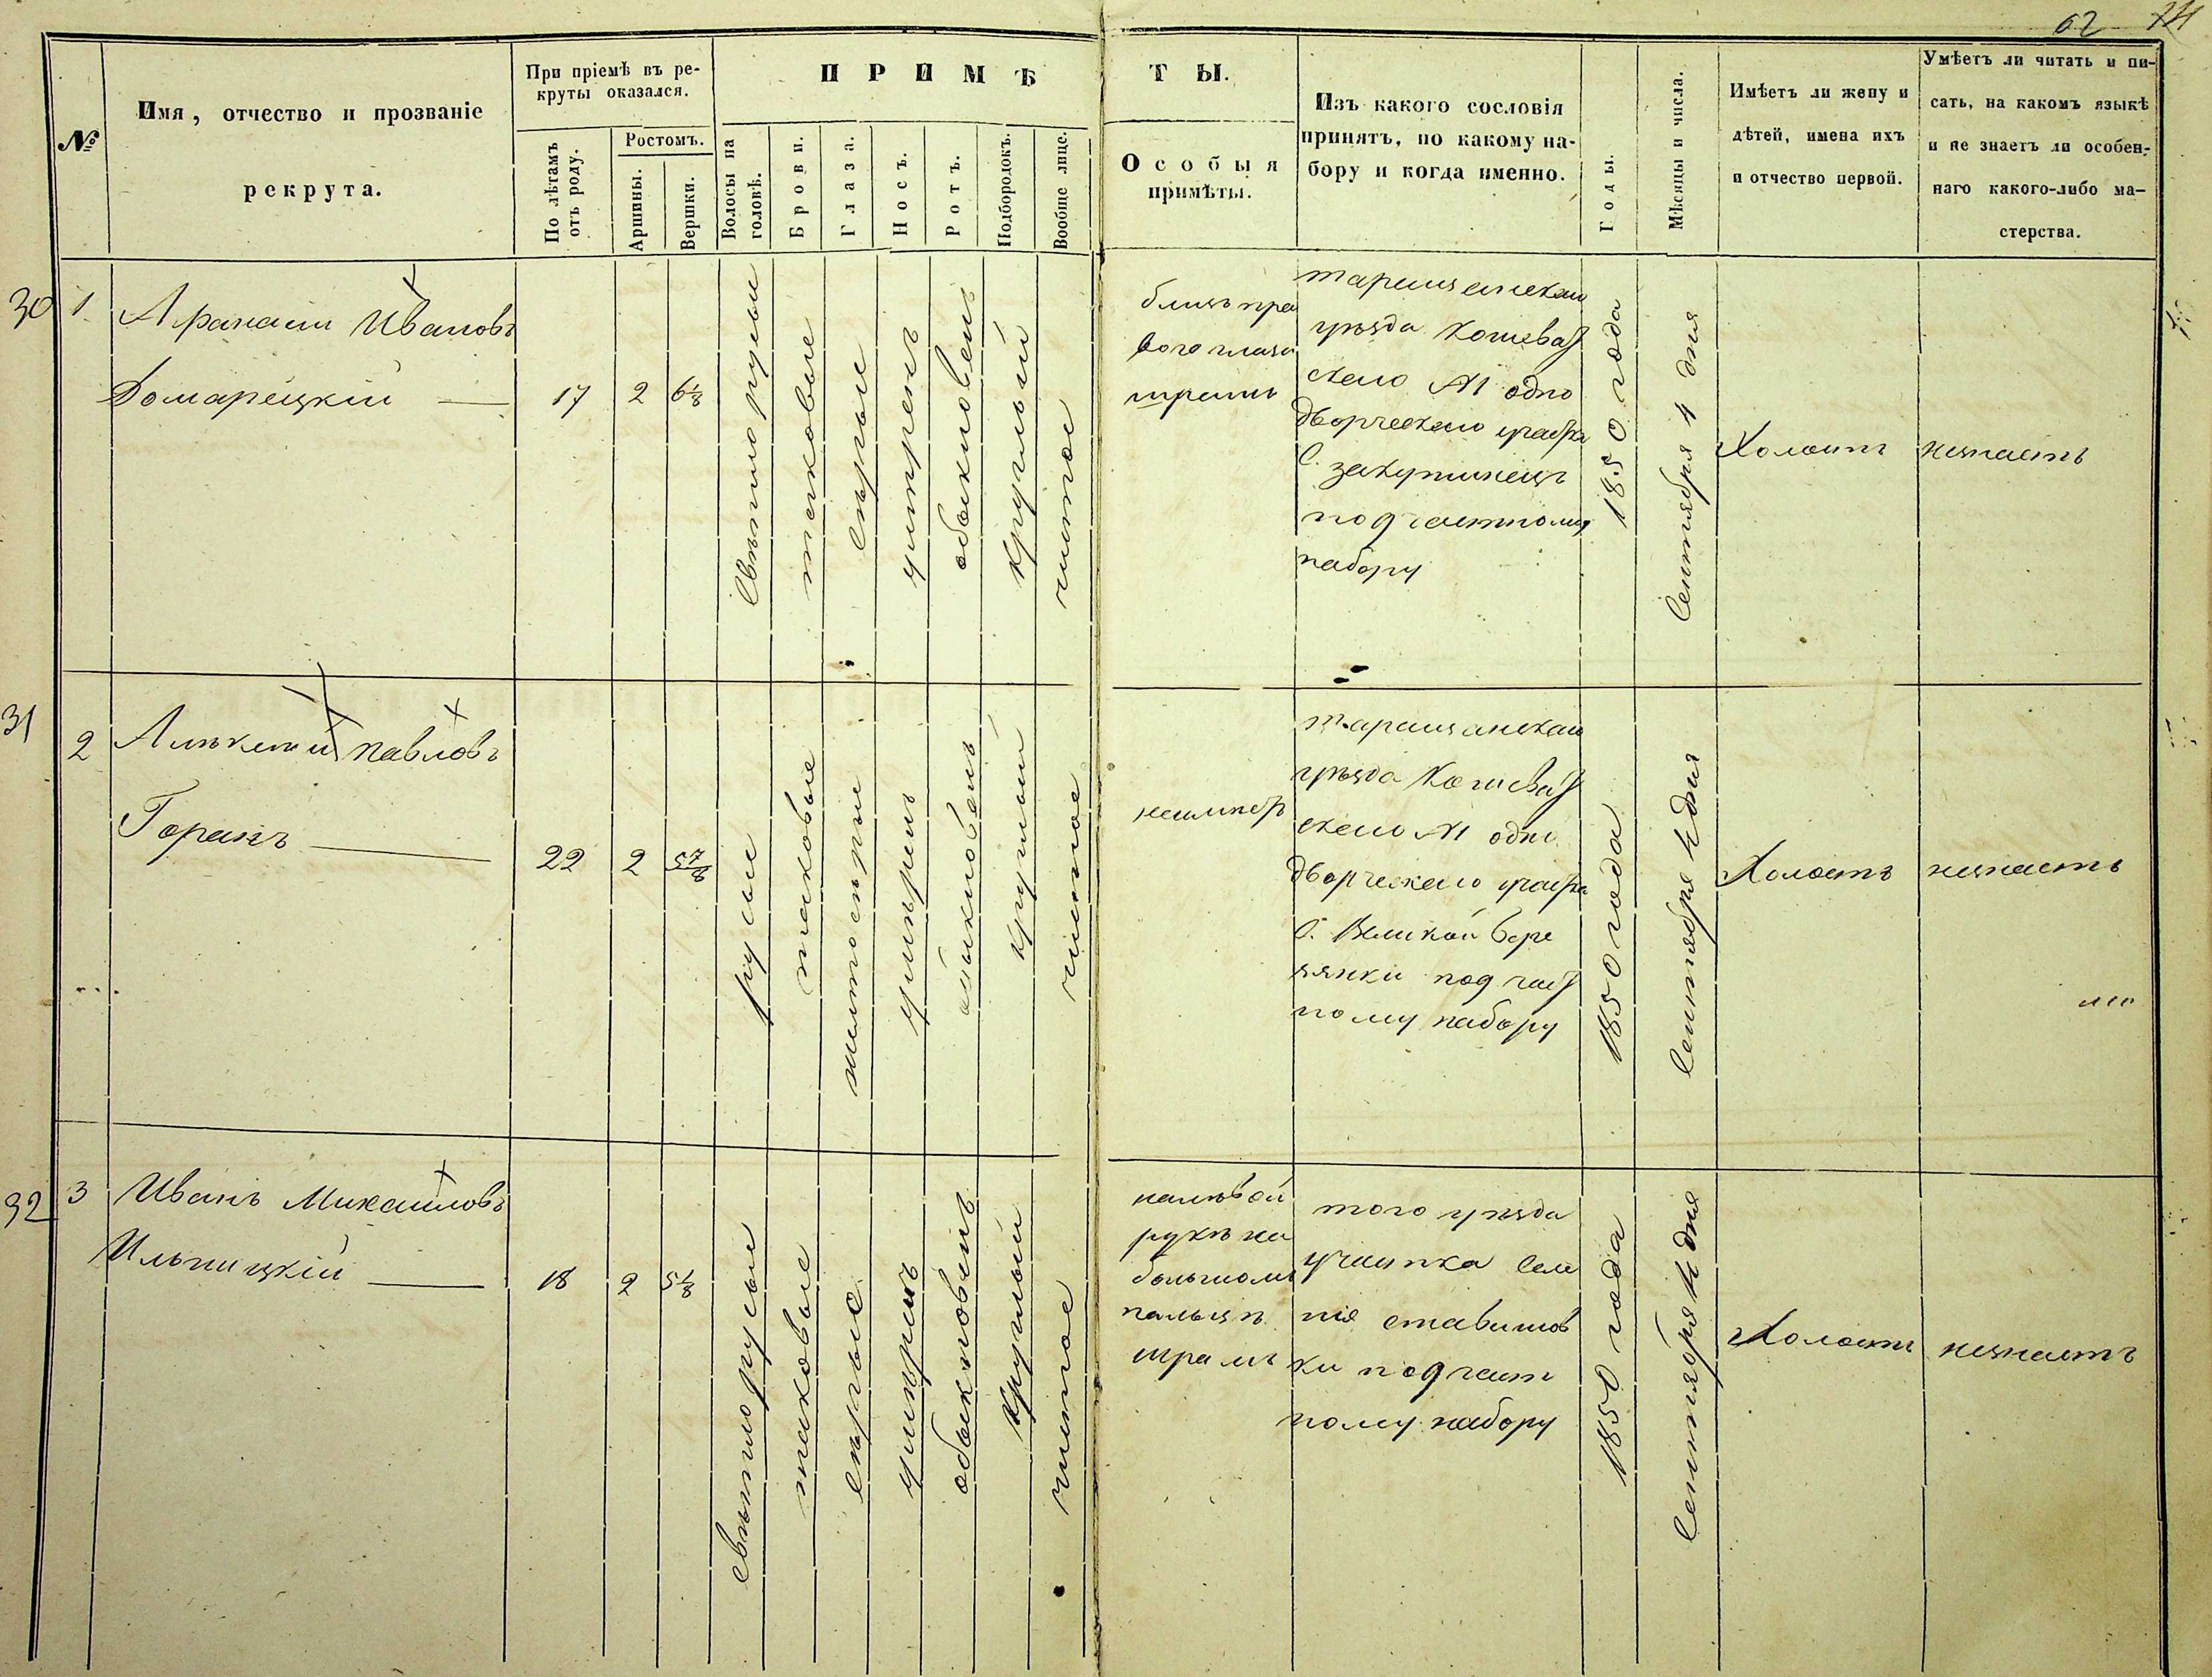 62
№
Имя, отчество и прозваніе
рекрута.
При пріемѣ въ ре-
круты оказался.
По лѣтамъ
отъ роду.
Ростомъ.
Аршины.
Вершки.
ПРИМѢ
ТЫ.
Волосы на
головѣ.
Брови.
Глаза.
Носъ.
Ротъ.
Подбородокъ.
Вообще лице.
Особыя
примѣты.
Изъ какого сословія
принятъ, по какому на-
бору и когда именно.
Годы.
Мѣсяцы и числа.
Имѣетъ ли жену и
дѣтей, имена ихъ
и отчество первой.
Умѣетъ ли читать и пи-
сать, на какомъ языкѣ
и не знаетъ ли особен-
наго какого-либо ма-
стерства.
30
1
Афанасій Ивановъ
Домарецкій
17
2
6 1/8
Свѣтло русыи
таковые
Сѣрые
умѣренъ
обыкновенъ
круглый
чистое
близь пра
вого глаза
шрамъ
таращанскаго
уѣзда Кошеват
скаго №1 одно
дворческаго участка
С. закутинецъ
под частному
набору
1850 года
Сентября 4 дня
Холостъ
незнаетъ
31
2
Алѣксѣй Павловъ
Горанъ
22
2
5 7/8
русые
таковые
желтосѣрые
умѣренъ
обыкновенъ
круглый
чистое
таращанскаго
уѣзда Кошеват
скаго №1 одно
дворческаго участка
С. Великой Бере
зянки под част
ному набору
1850 года
Сентября 4 дня
Холостъ
незнаетъ
32
3
Иванъ Михайловъ
Ильницкій
18
2
5 1/8
свѣтло русыи
таковые
сѣрые
умѣренъ
обыкновенъ
круглый
чистое
на лѣвой
рукѣ на
большомъ
пальцѣ
шрамъ
того уѣзда
участка Селе
нія ставищов
ки под част
ному набору
1850 года
Сентября 4 дня
Холостъ
незнаетъ